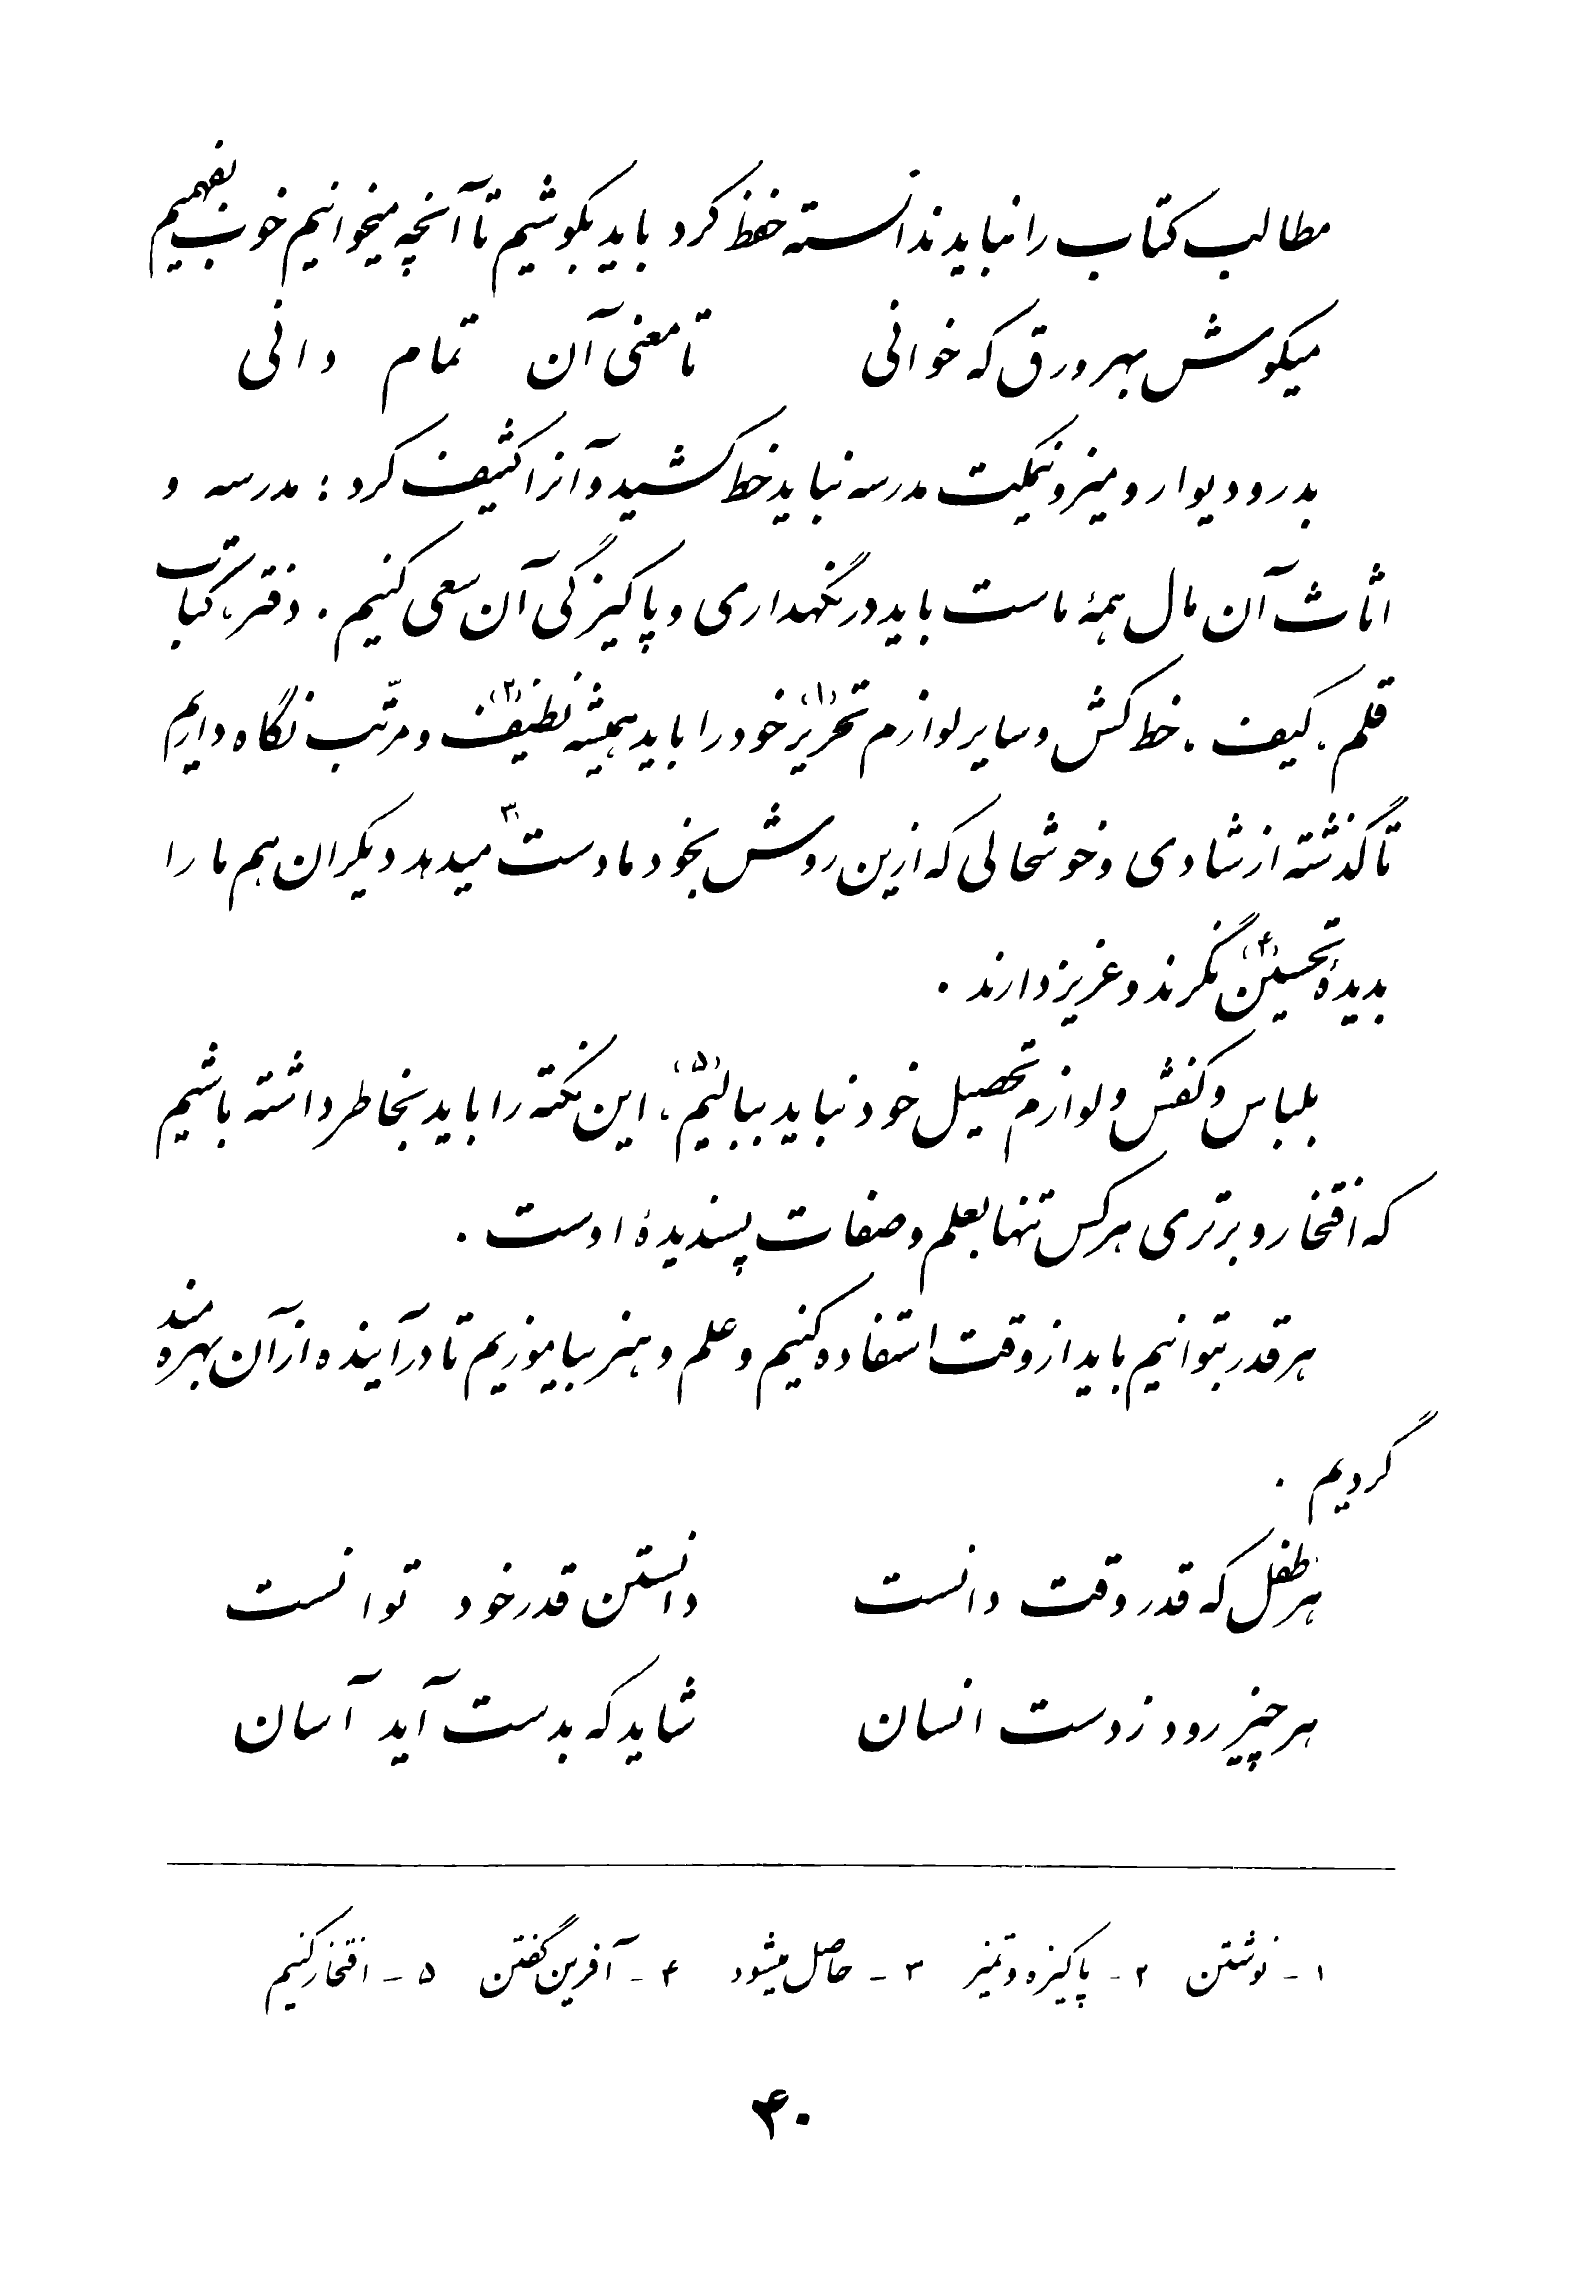 مطالب کتاب را نباید ندانسته حفظ کرد باید بکوشیم تا آنچه میخوانیم خوب بفهمیم
میکوش بهر ورق که خوانی تا معنی آن تمام دانی
بدر و دیوار و میز و نیمکت مدرسه نباید خط کشید و آنرا کثیف کرد : مدرسه و
اثاث آن مال همهٔ ماست باید در نگهداری و پاکیزگی آن سعی کنیم . دفتر، کتاب
قلم، کیف، خط کش و سایر لوازم تحریر (۱) خود را باید همیشه نظیف (۲) و مرتّب نگاه داریم
تا گذشته از شادی و خوشحالی که ازین روش بخود ما دست (۳) میدهد دیگران هم ما را
بدیدهٔ تحسین (۴) نگرند و عزیز دارند .
بلباس و کفش و لوازم تحصیل خود نباید ببالیم (۵)، این نکته را باید بخاطر داشته باشیم
که افتخار و برتری هر کس تنها بعلم و صفات پسندیدهٔ اوست .
هر قدر بتوانیم باید از وقت استفاده کنیم و علم و هنر بیاموزیم تا در آینده از آن بهره مند
گردیم .
هر طفل که قدر وقت دانست دانستن قدر خود توانست
هر چیز رود ز دست انسان شاید که بدست آید آسان
۱ - نوشتن ۲ - پاکیزه و تمیز ۳ - حاصل میشود ۴ - آفرین گفتن ۵ - افتخار کنیم
۴۰